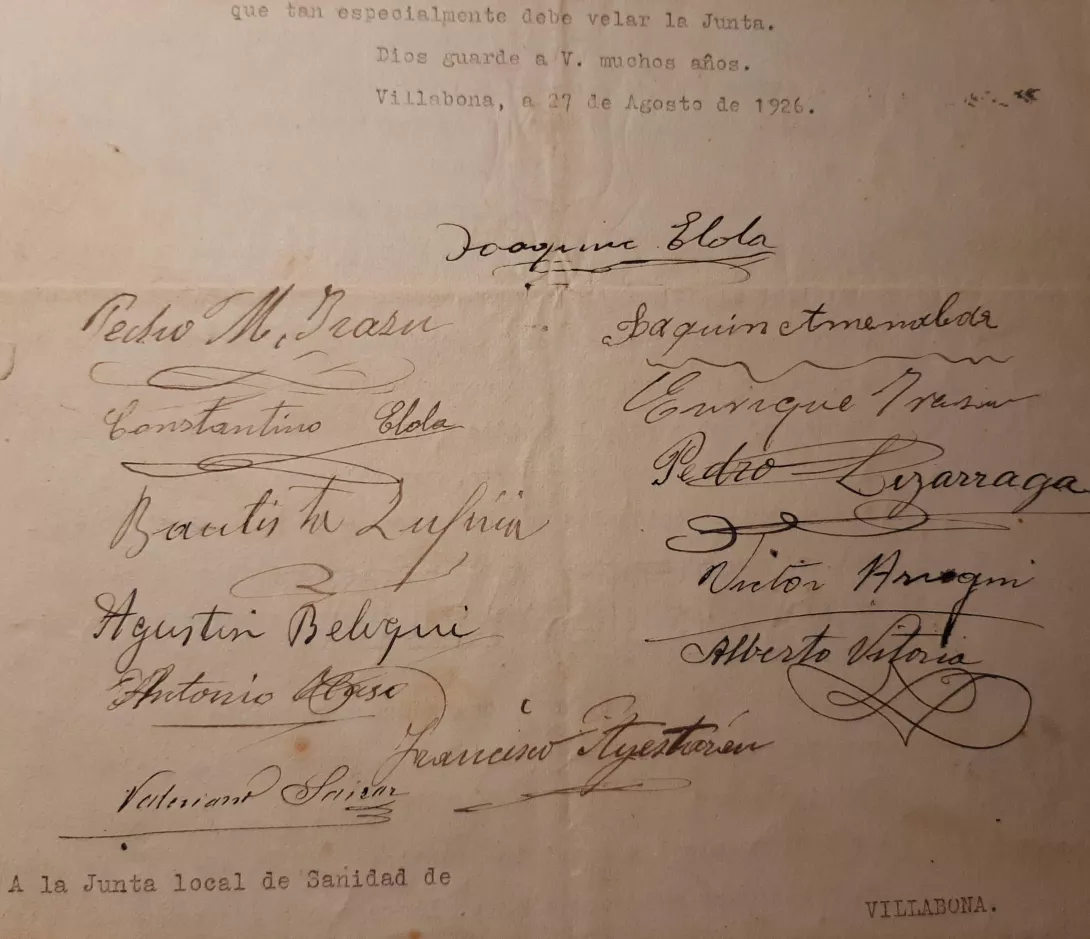 que tan especialmente debe velar la Junta.
Dios guarde a V. muchos años.
Villabona, a 27 de Agosto de 1926.
Joaquin Elola
Pedro M. Irazu
Joaquin Amenabar
Constantino Elola
Enrique Irazu
Pedro Lizarraga
Bautista
Victor
Agustin Beloqui
Alberto Vitoria
Antonio
Francisco Ayestarán
Valeriano Saizar
A la Junta local de Sanidad de
VILLABONA.